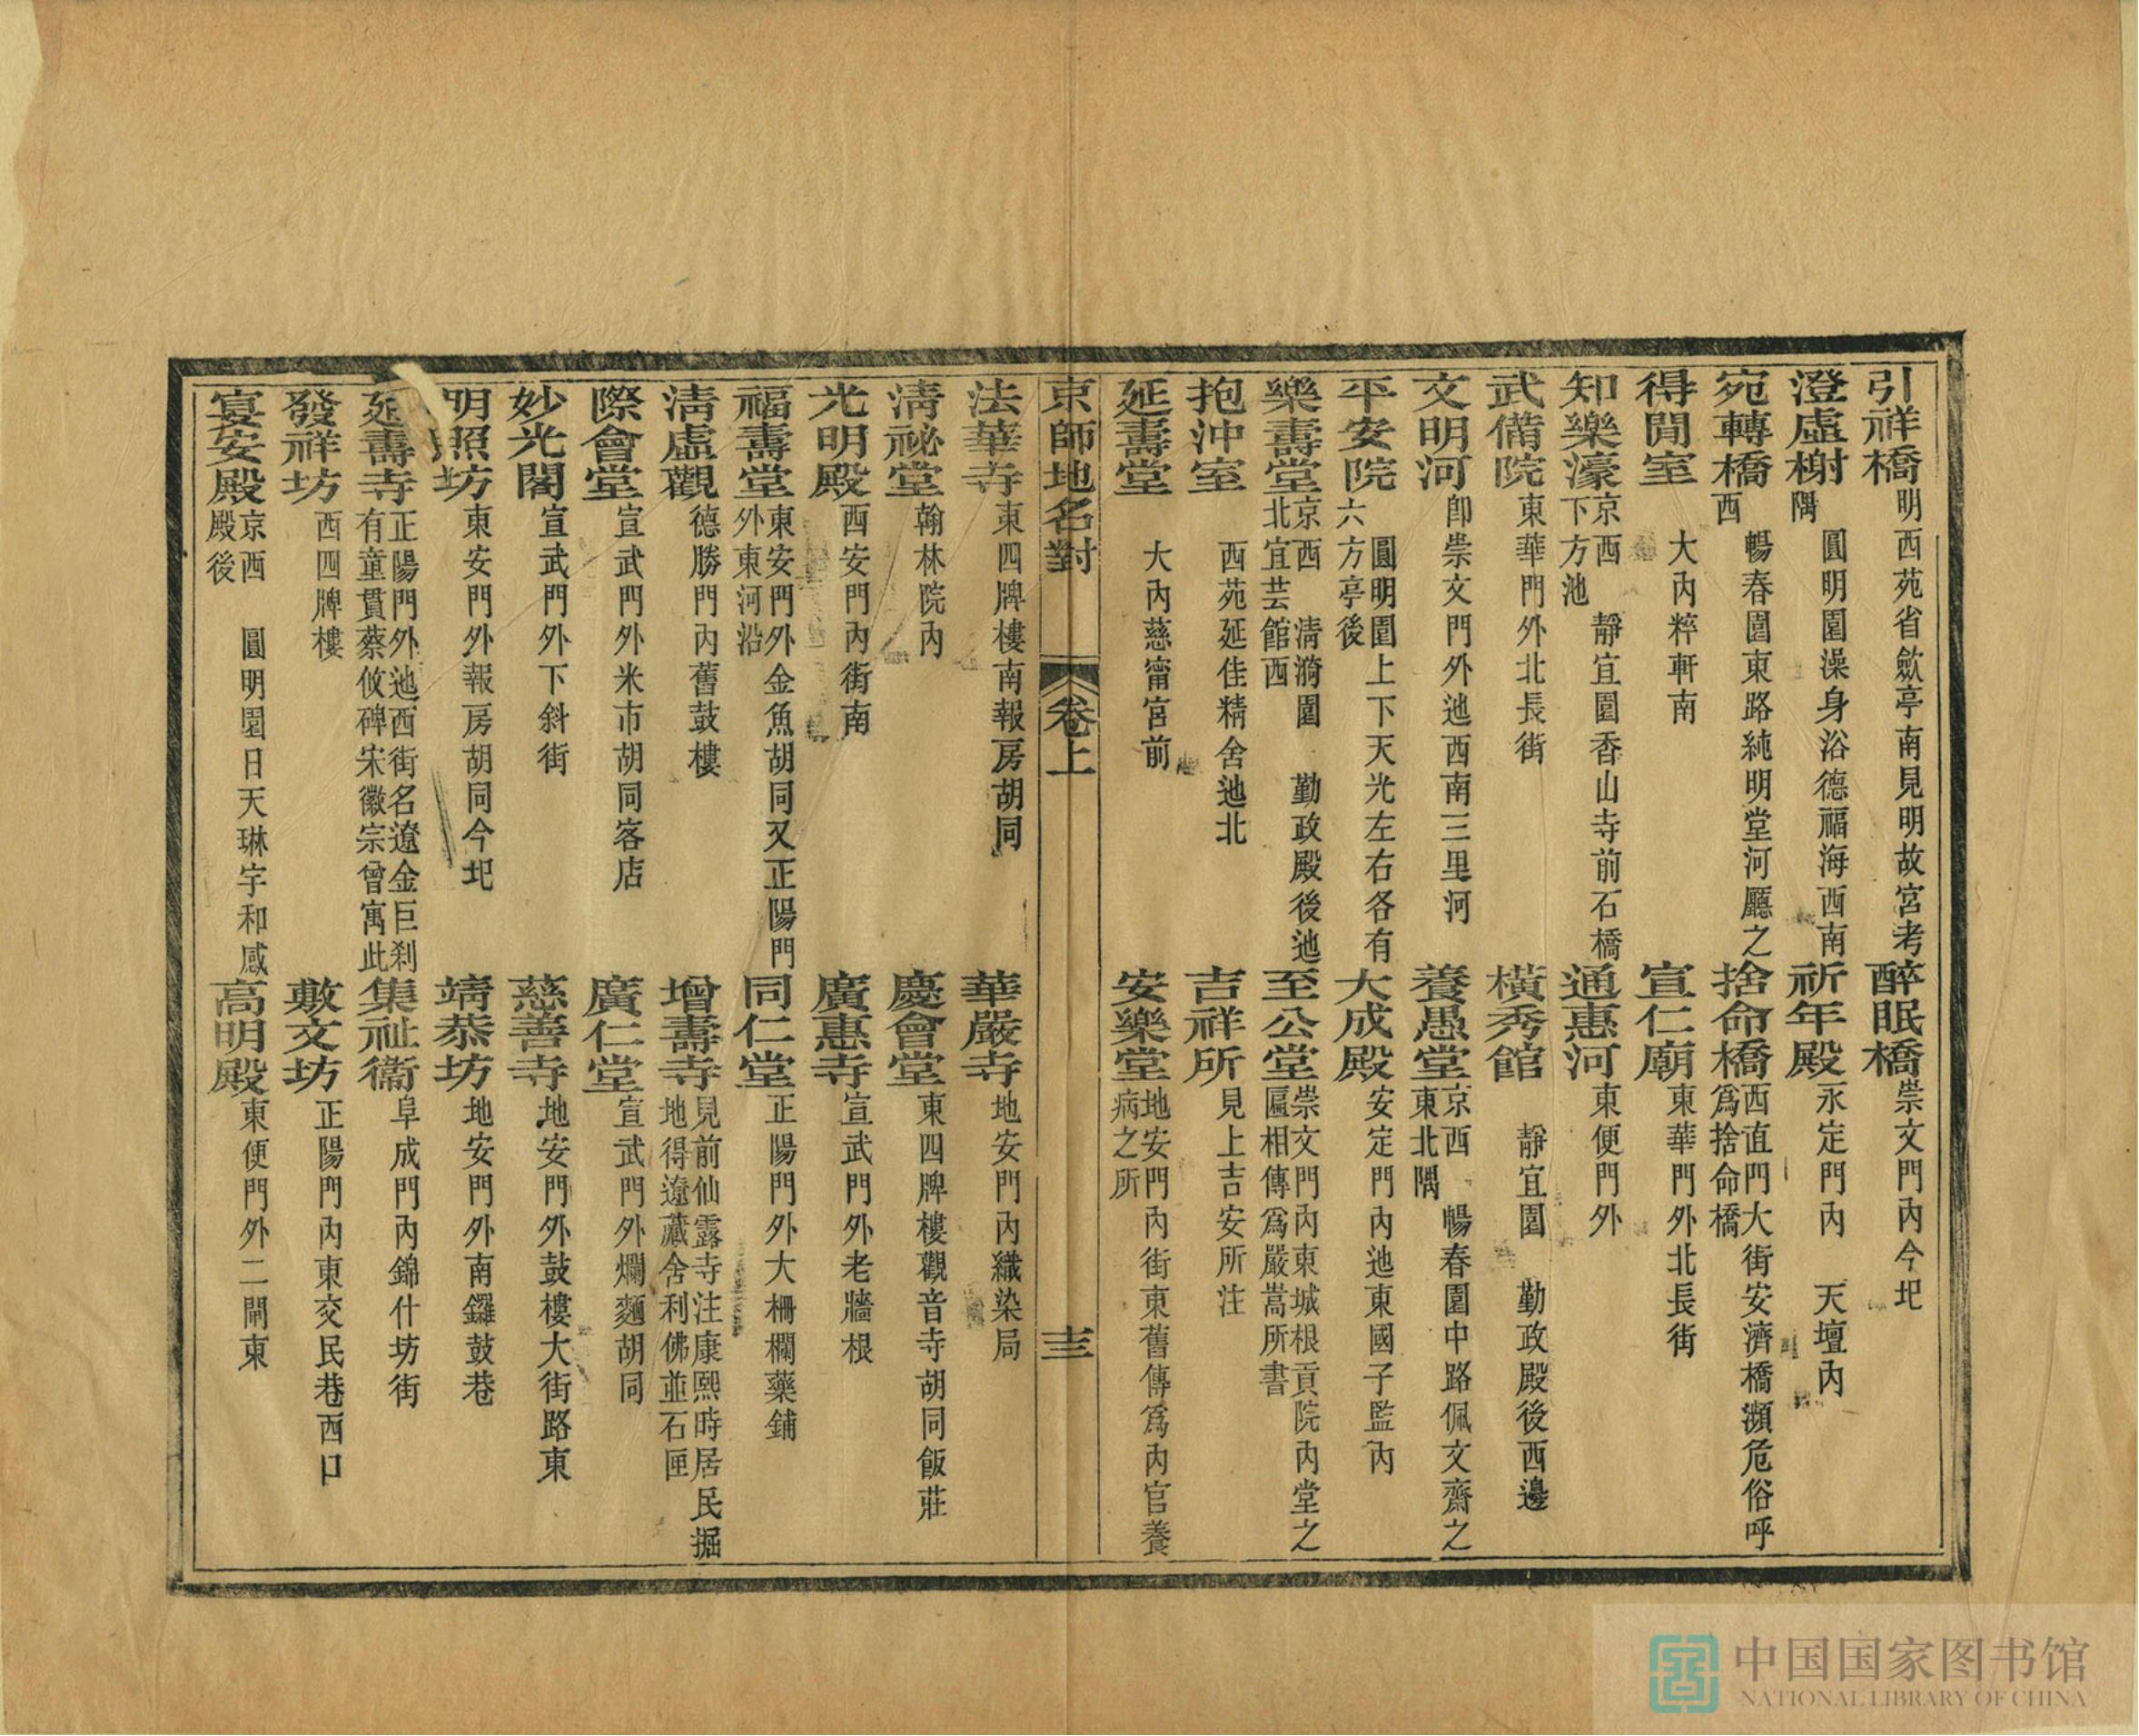 引祥橋明西苑省歛亭南見明故宮考 醉眠橋崇文門內今圯
澄虛榭圓明園澡身浴德福海西南隅 祈年殿永定門內 天壇內
宛轉橋暢春園東路純明堂河廳之西 捨命橋西直門大街安濟橋瀕危俗呼爲捨命橋
得閒室 大內粹軒南 宣仁廟東華門外北長街
知樂濠京西 靜宜園香山寺前石橋下方池 通惠河東便門外
武備院東華門外北長街 橫秀館 靜宜園 勤政殿後西邊
文明河卽崇文門外迆西南三里河 養愚堂京西 暢春園中路佩文齋之東北隅
平安院 圓明園上下天光左右各有六方亭後 大成殿安定門內迆東國子監內
樂壽堂京西 清漪園 勤政殿後迆北宜芸館西 至公堂崇文門內東城根貢院內堂之匾相傳爲嚴嵩所書
抱沖室 西苑延佳精舍迆北 吉祥所見上吉安所注
延壽堂 大內慈甯宮前 安樂堂地安門內街東舊傳爲內官養病之所
京師地名對 卷上 十三
法華寺東四牌樓南報房胡同 華嚴寺地安門內織染局
清祕堂翰林院內 慶會堂東四牌樓觀音寺胡同飯莊
光明殿西安門內街南 廣惠寺宣武門外老牆根
福壽堂東安門外金魚胡同又正陽門外東河沿 同仁堂正陽門外大柵欄藥鋪
清虛觀德勝門內舊鼓樓 增壽寺見前仙露寺注康熙時居民掘地得遼藏舍利佛並石匣
際會堂宣武門外米市胡同客店 廣仁堂宣武門外爛麵胡同
妙光閣宣武門外下斜街 慈善寺地安門外鼓樓大街路東
明照坊東安門外報房胡同今圯 靖恭坊地安門外南鑼鼓巷
延壽寺正陽門外迆西街名遼金巨刹有童貫蔡攸碑宋徽宗曾寓此 集祉衞阜成門內錦什坊街
發祥坊西四牌樓 敷文坊正陽門內東交民巷西口
宴安殿京西 圓明園日天琳宇和感殿後 高明殿東便門外二閘東
中国国家图书馆
NATIONAL LIBRARY OF CHINA